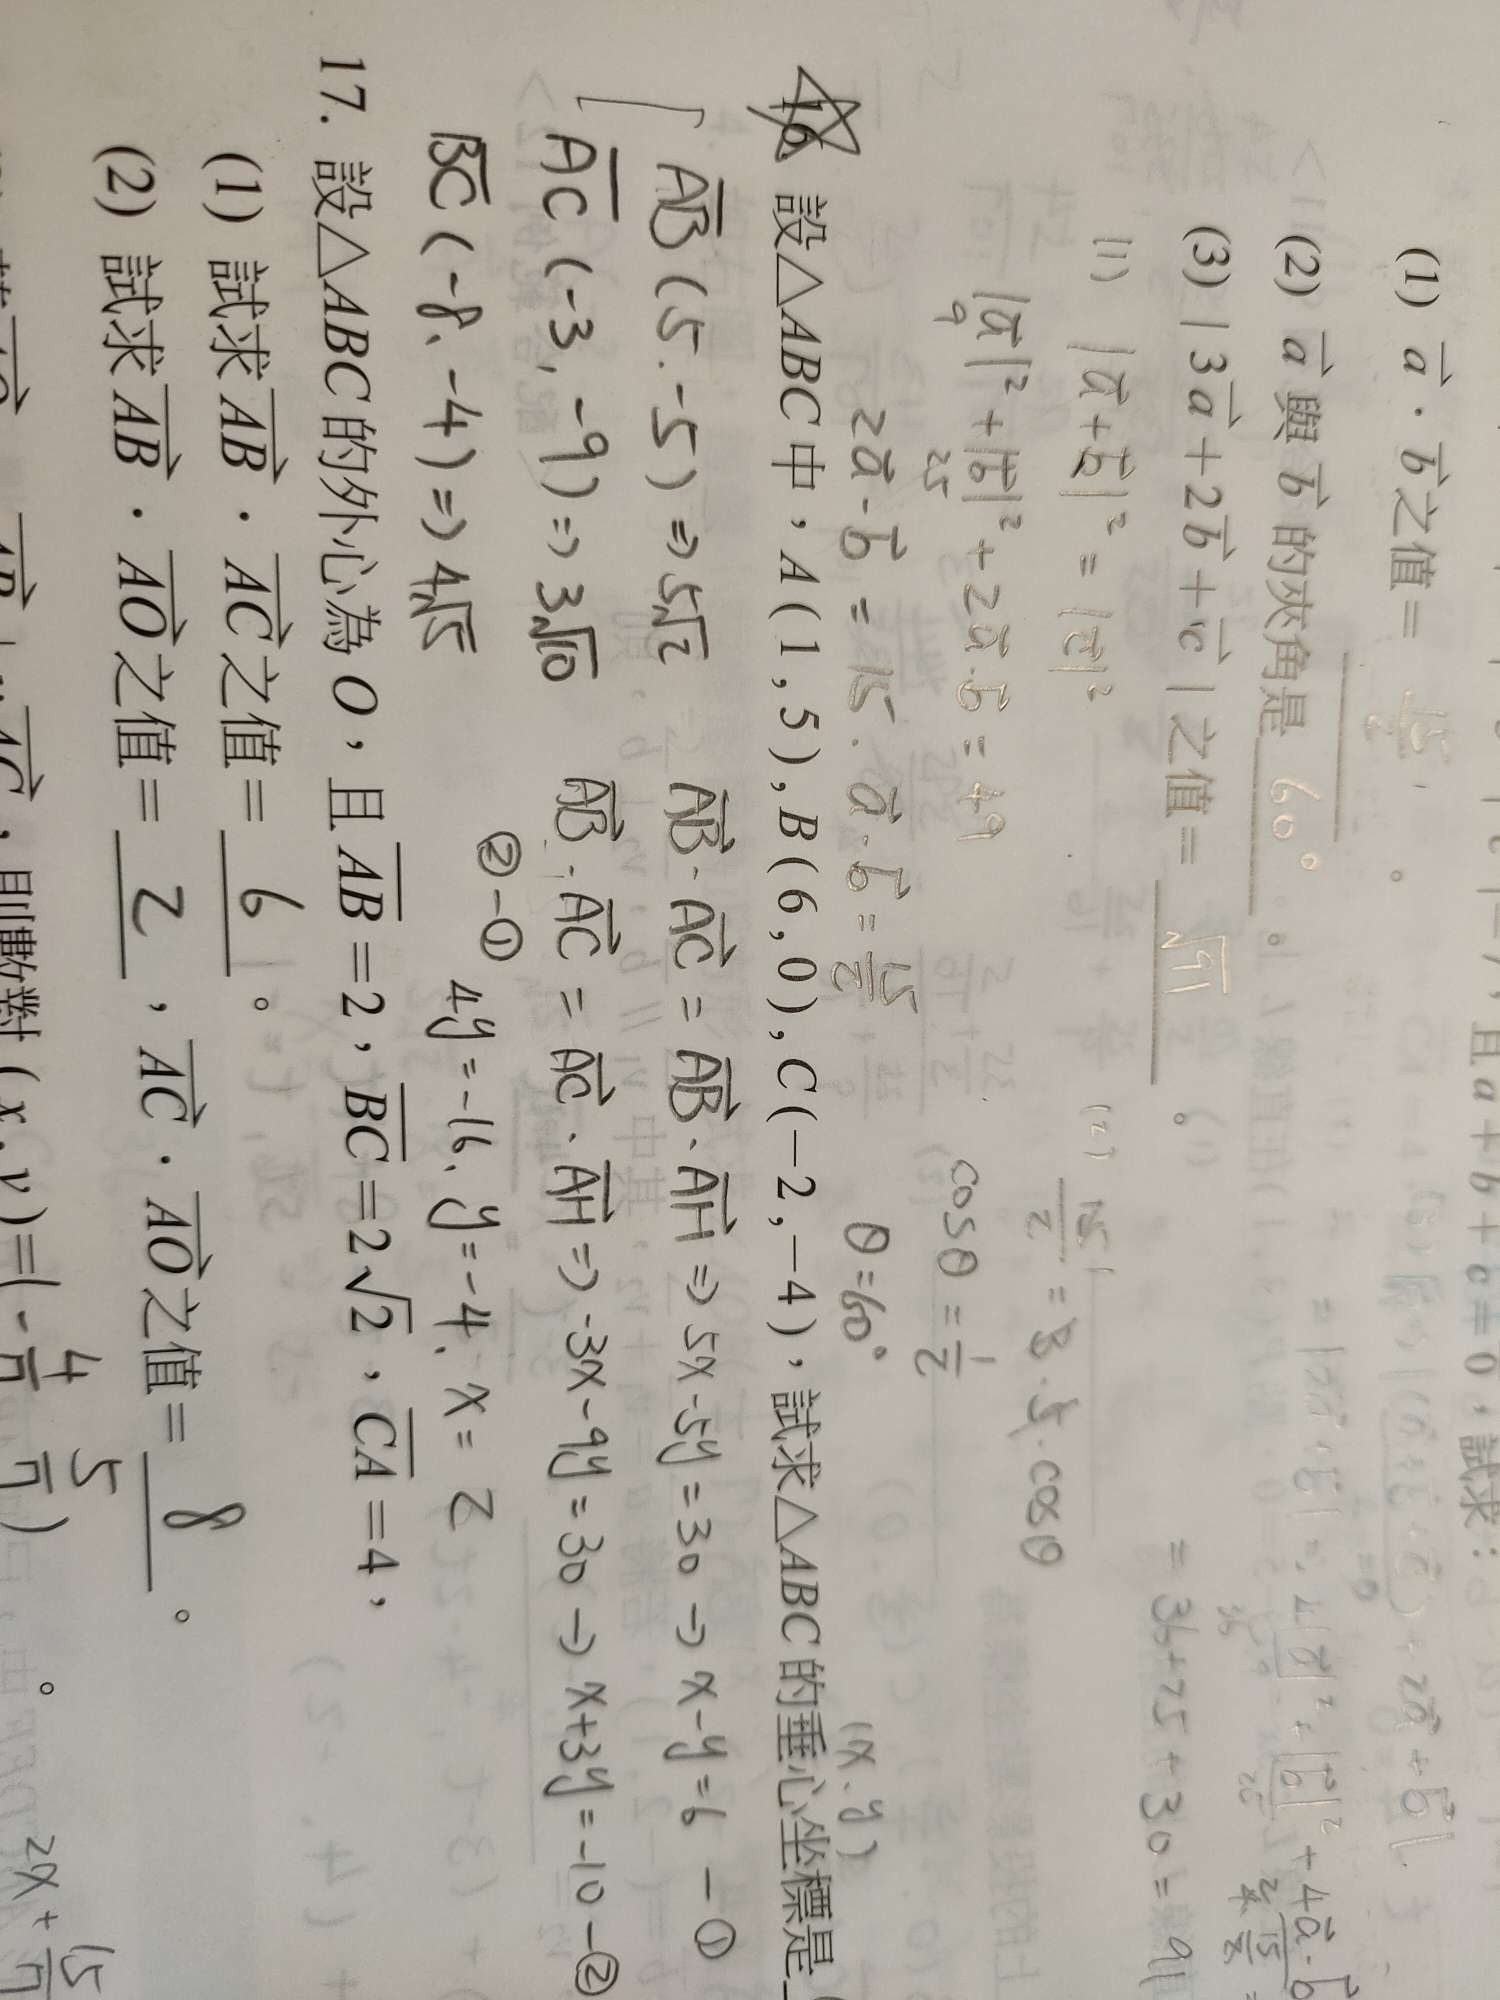 且a+b+c=0,試求:
(1) a·b之值= 15/2 。
(2) a與b的夾角是 60° 。
(3) |3a+2b+c|之值= √91 。
(1) |a+b|² = |c|²
|a|²+|b|²+2a·b = 49
9 25
2a·b = 15. a·b = 15/2
(2) 15/2 = 3·5·cosθ
cosθ = 1/2
θ=60°
= |2a+b| =
= 36+25+30 = 91
(x.y)
16 設△ABC中,A(1,5),B(6,0),C(−2,−4),試求△ABC的垂心坐標是
AB (5.-5) ⇒ 5√2 AB·AC = AB·AH ⇒ 5x-5y=30 → x-y=6 -①
AC (-3,-9) ⇒ 3√10 AB·AC = AC·AH ⇒ -3x-9y=30 → x+3y=-10-②
BC (-8、-4) ⇒ 4√5 ②-① 4y=-16、y=-4、x=2
17. 設△ABC的外心為O,且AB=2,BC=2√2,CA=4,
(1) 試求AB·AC之值= 6 。
(2) 試求AB·AO之值= 2 ,AC·AO之值= 8 。
,則數對(x,y)=(-4/